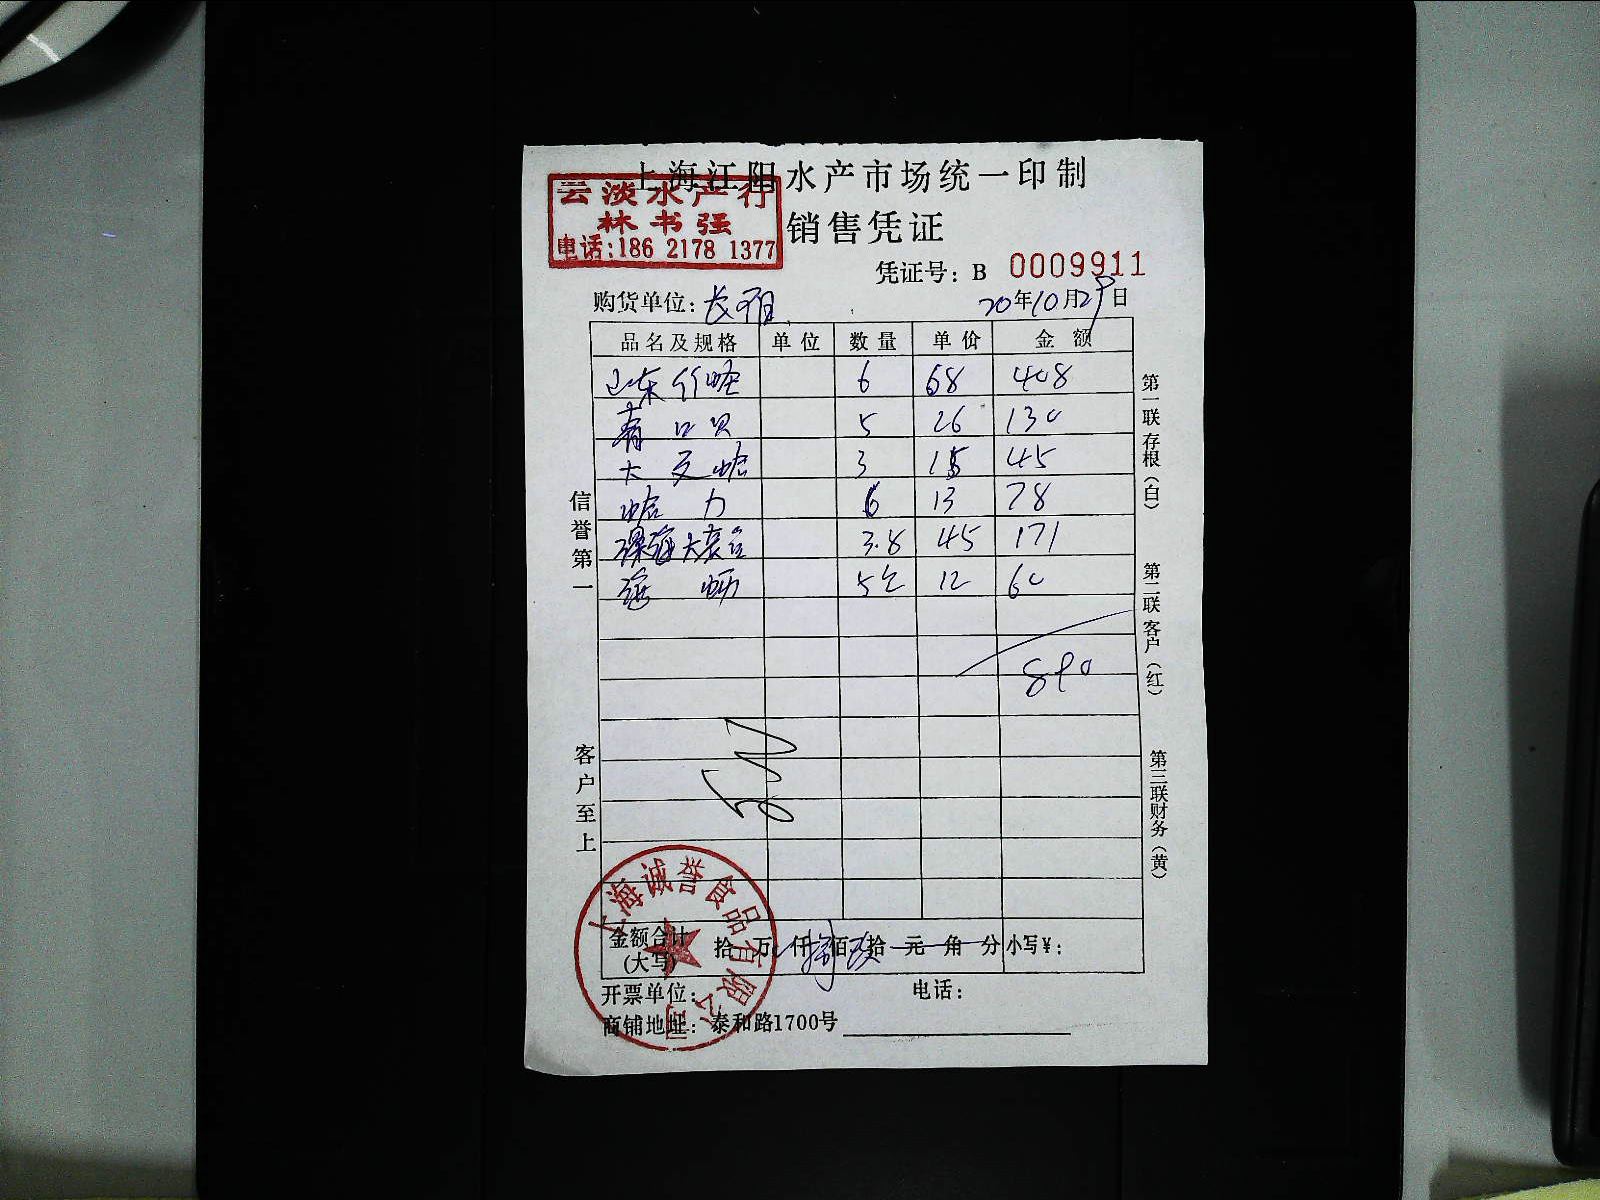 上海江阳水产市场统一印制
云淡水产行
林书强
电话:186 2178 1377
销售凭证
凭证号: B 0009911
购货单位:
20年10月29日
品名及规格 单位 数量 单价 金额
山东竹蛏 6 68 408
青口贝 5 26 130
大文蛤 3 15 45
蛤力 6 13 78
深海大 3.8 45 171
海蛎 5 12 60
890
信誉第一
客户至上
第一联存根(白)
第二联客户(红)
第三联财务(黄)
金额合计(大写) 拾 万 仟 捌佰玖拾 元 角 分 小写¥:
开票单位:
电话:
商铺地址: 泰和路1700号
上海诚誉食品有限公司